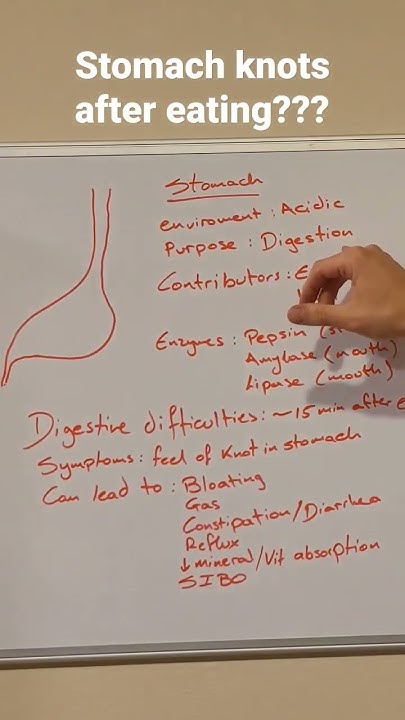 Stomach knots
after eating???
Stomach
enviroment : Acidic
Purpose : Digestion
Contributors :
Enzymes : Pepsin
Amylase (mouth)
Lipase (mouth)
Digestive difficulties : ~15 min after
Symptoms : feel of Knot in stomach
Can lead to : Bloating
Gas
Constipation/Diarrhea
Reflux
↓ mineral/Vit absorption
SIBO